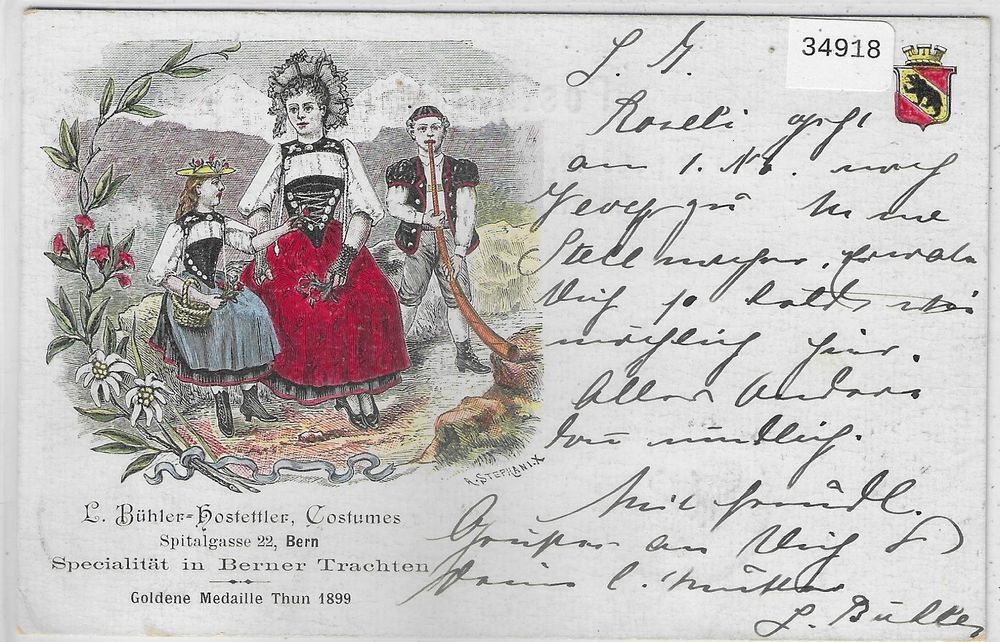 34918
L. B.
Roseli geht
am 1. Nov. nach
Vevey zu
Stell
Dich so bald wie
möglich hier.
Alles Andere
dann mündlich.
Mit freundl.
Grüssen an Dich &
Deine l. Mutter
L. Bühler
A. STEPHANI. X
L. Bühler-Hostettler, Costumes
Spitalgasse 22, Bern
Specialität in Berner Trachten
Goldene Medaille Thun 1899